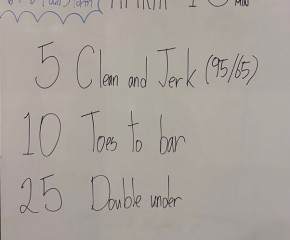 5 Clean and Jerk (95/65)
10 Toes to bar
25 Double under